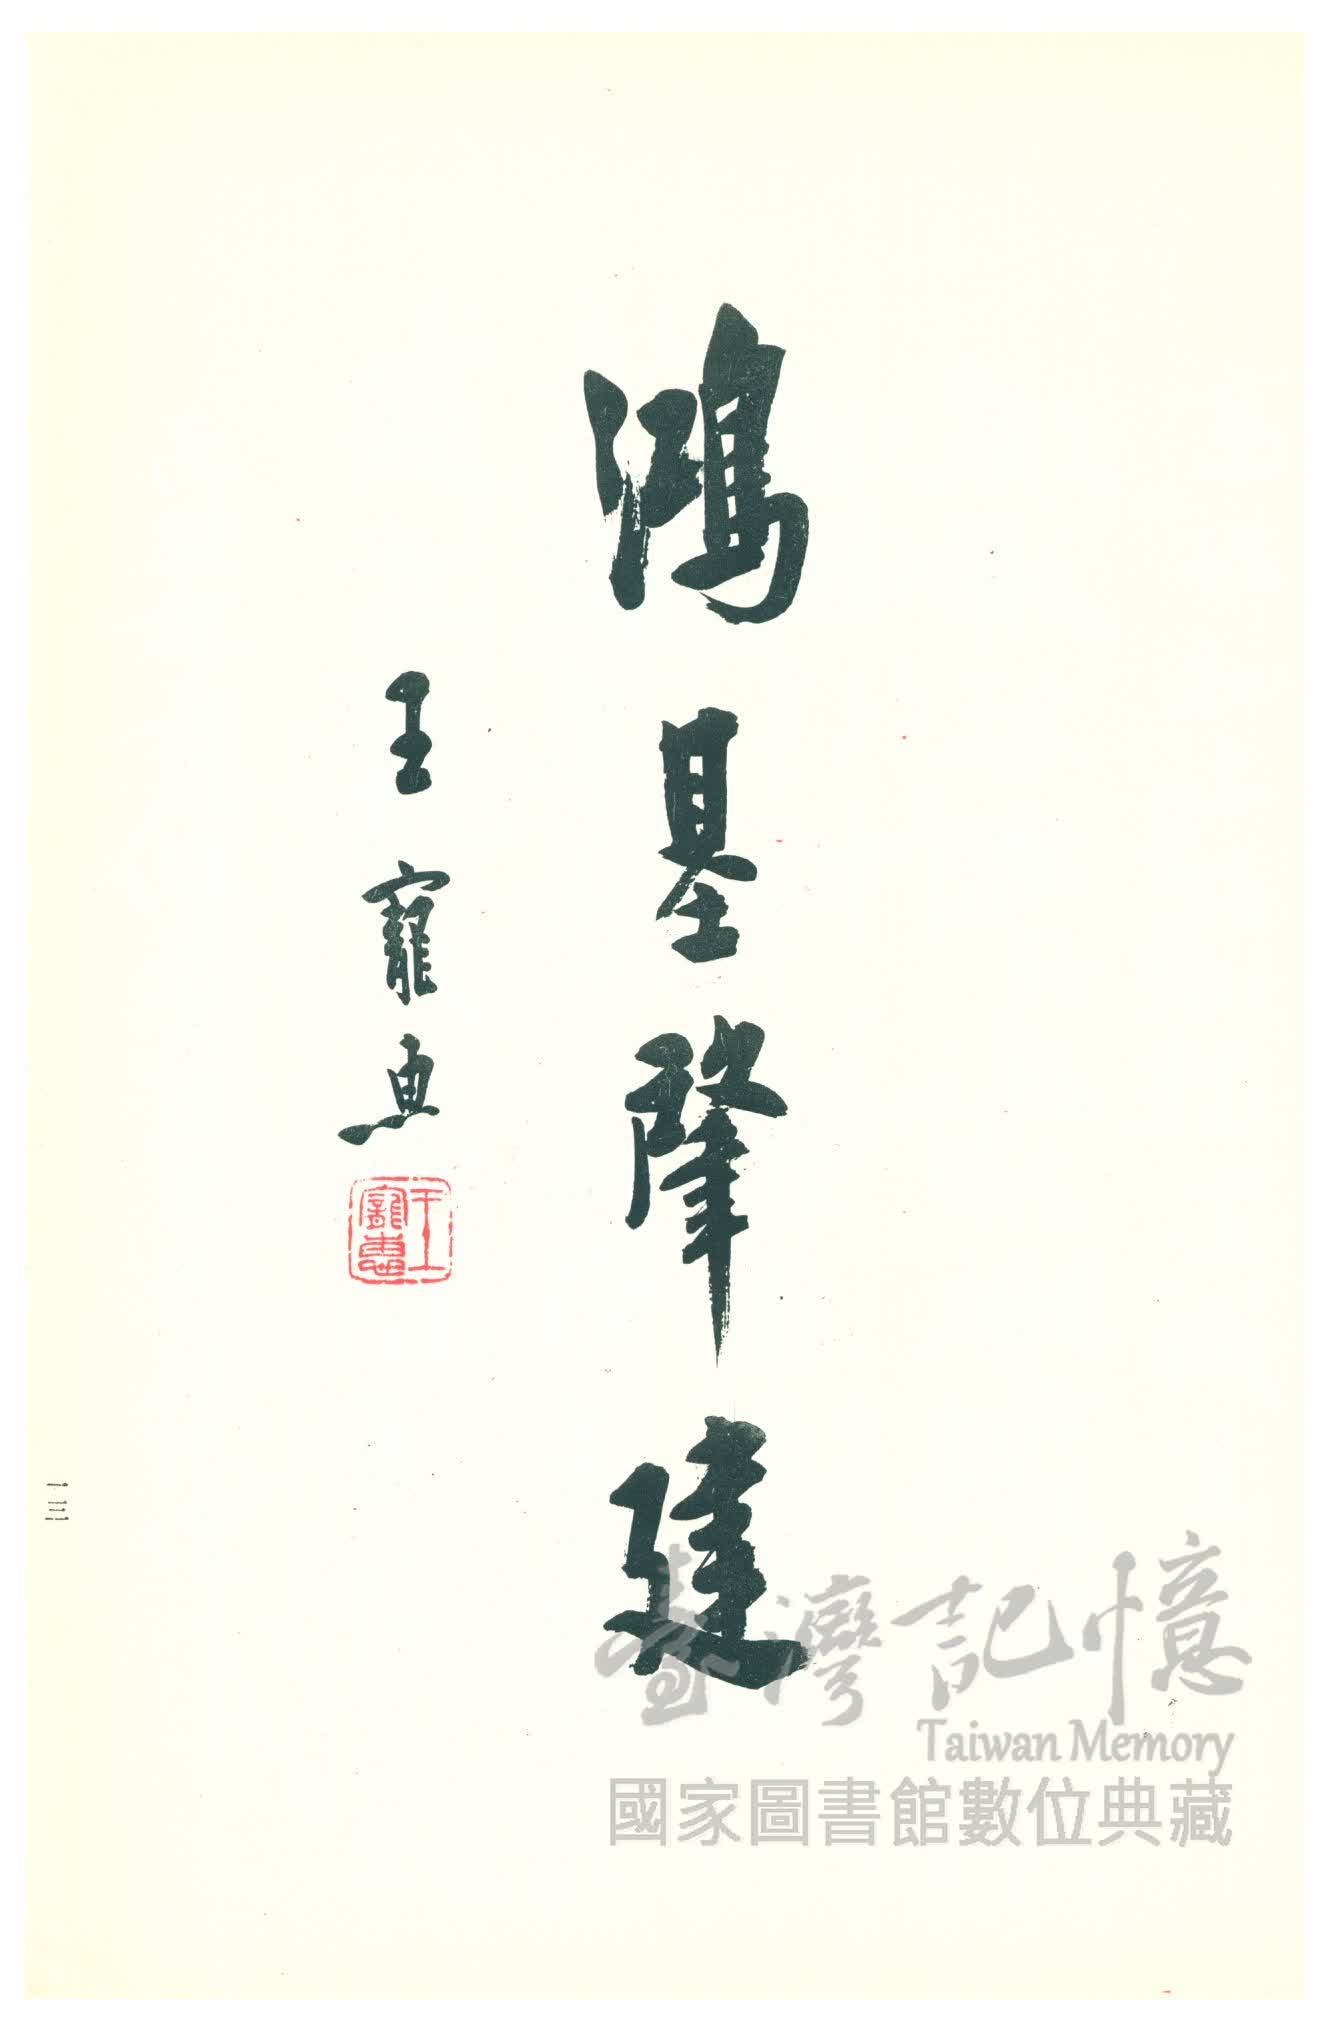 鴻基肇建
王寵惠
王寵惠
一三
臺灣記憶
Taiwan Memory
國家圖書館數位典藏